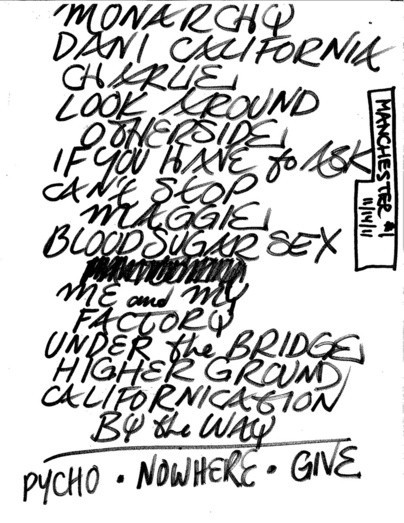 MONARCHY
DANI CALIFORNIA
CHARLIE
LOOK AROUND
OTHERSIDE
IF YOU HAVE to ASK
CAN'T STOP
MAGGIE
BLOODSUGAR SEX
ME and MY
FACTORY
UNDER the BRIDGE
HIGHER GROUND
CALIFORNICATION
BY the WAY
PYCHO • NOWHERE • GIVE
MANCHESTER #1
11/14/11